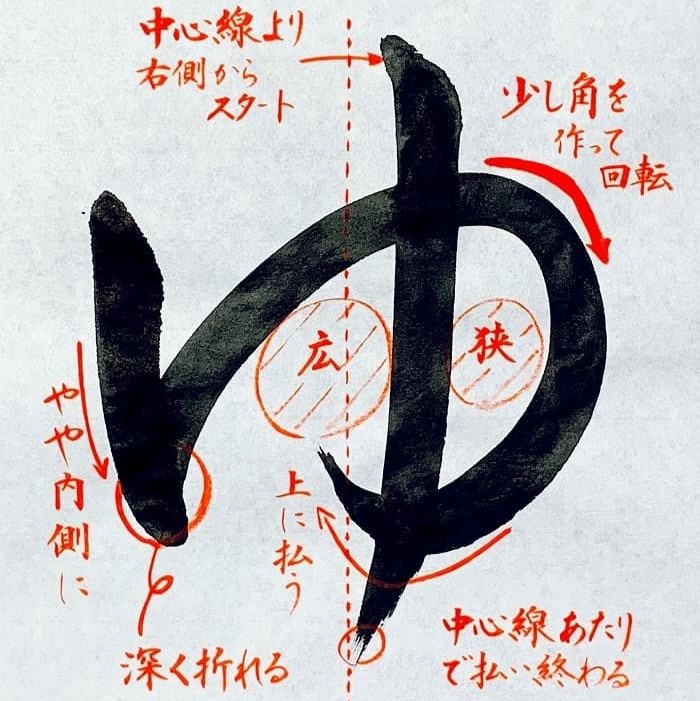 中心線より
右側から
スタート
少し角を
作って
回転
ゆ
広
狭
やや内側に
上に払う
深く折れる
中心線あたり
で払い終わる